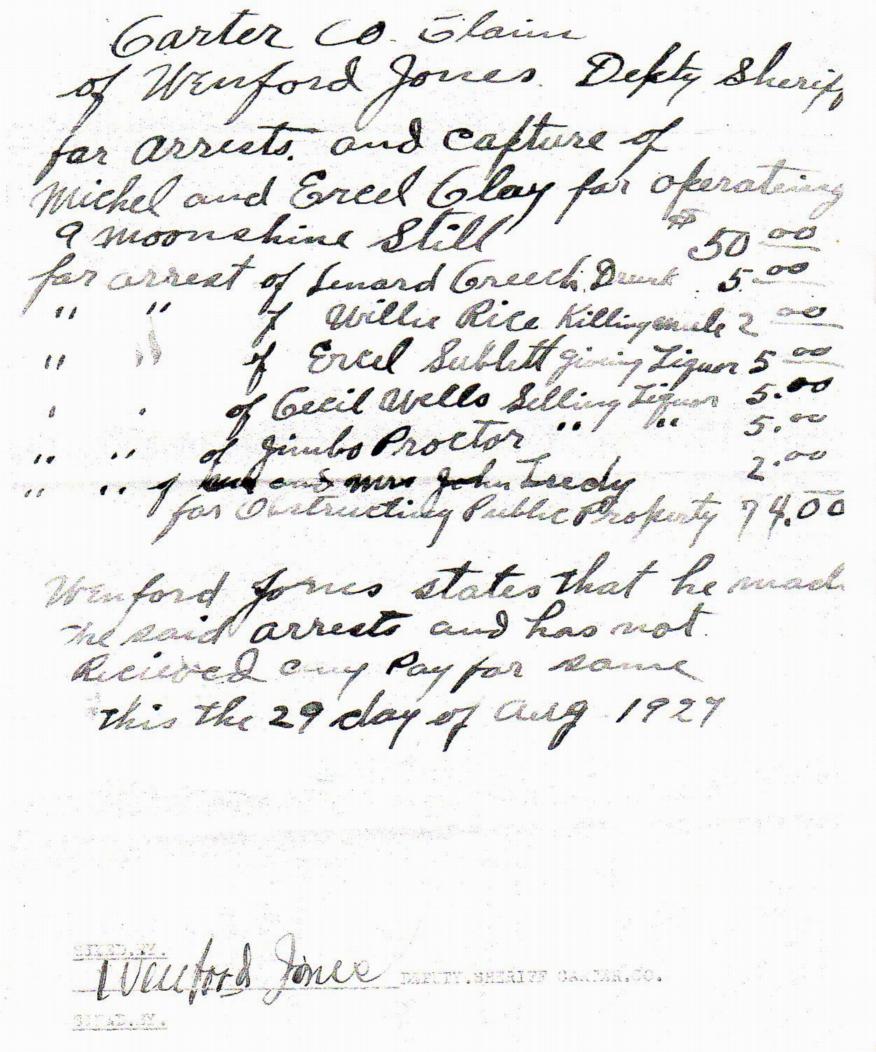 Carter Co. Claim
of Wenford Jones. Depty Sheriff
for arrests. and capture of
Michel and Ercel Clay for operateing
a moonshine Still $50.00
for arrest of Lenard Creech, Drunk 5.00
" " of Willie Rice Killing mule 2.00
" " of Ercel Sublett giving Liquor 5.00
" " of Cecil Wells Selling Liquor 5.00
" " of Jimbo Proctor " " 5.00
" " of and mrs John 2.00
for Obstructing Public Property 74.00
Wenford Jones states that he made
the said arrests and has not
Recieved any Pay for same
this the 29 day of Aug 1927
SINED.BY.
Wenford Jones DEPUTY.SHERIFF CARTER.CO.
SINED.BY.